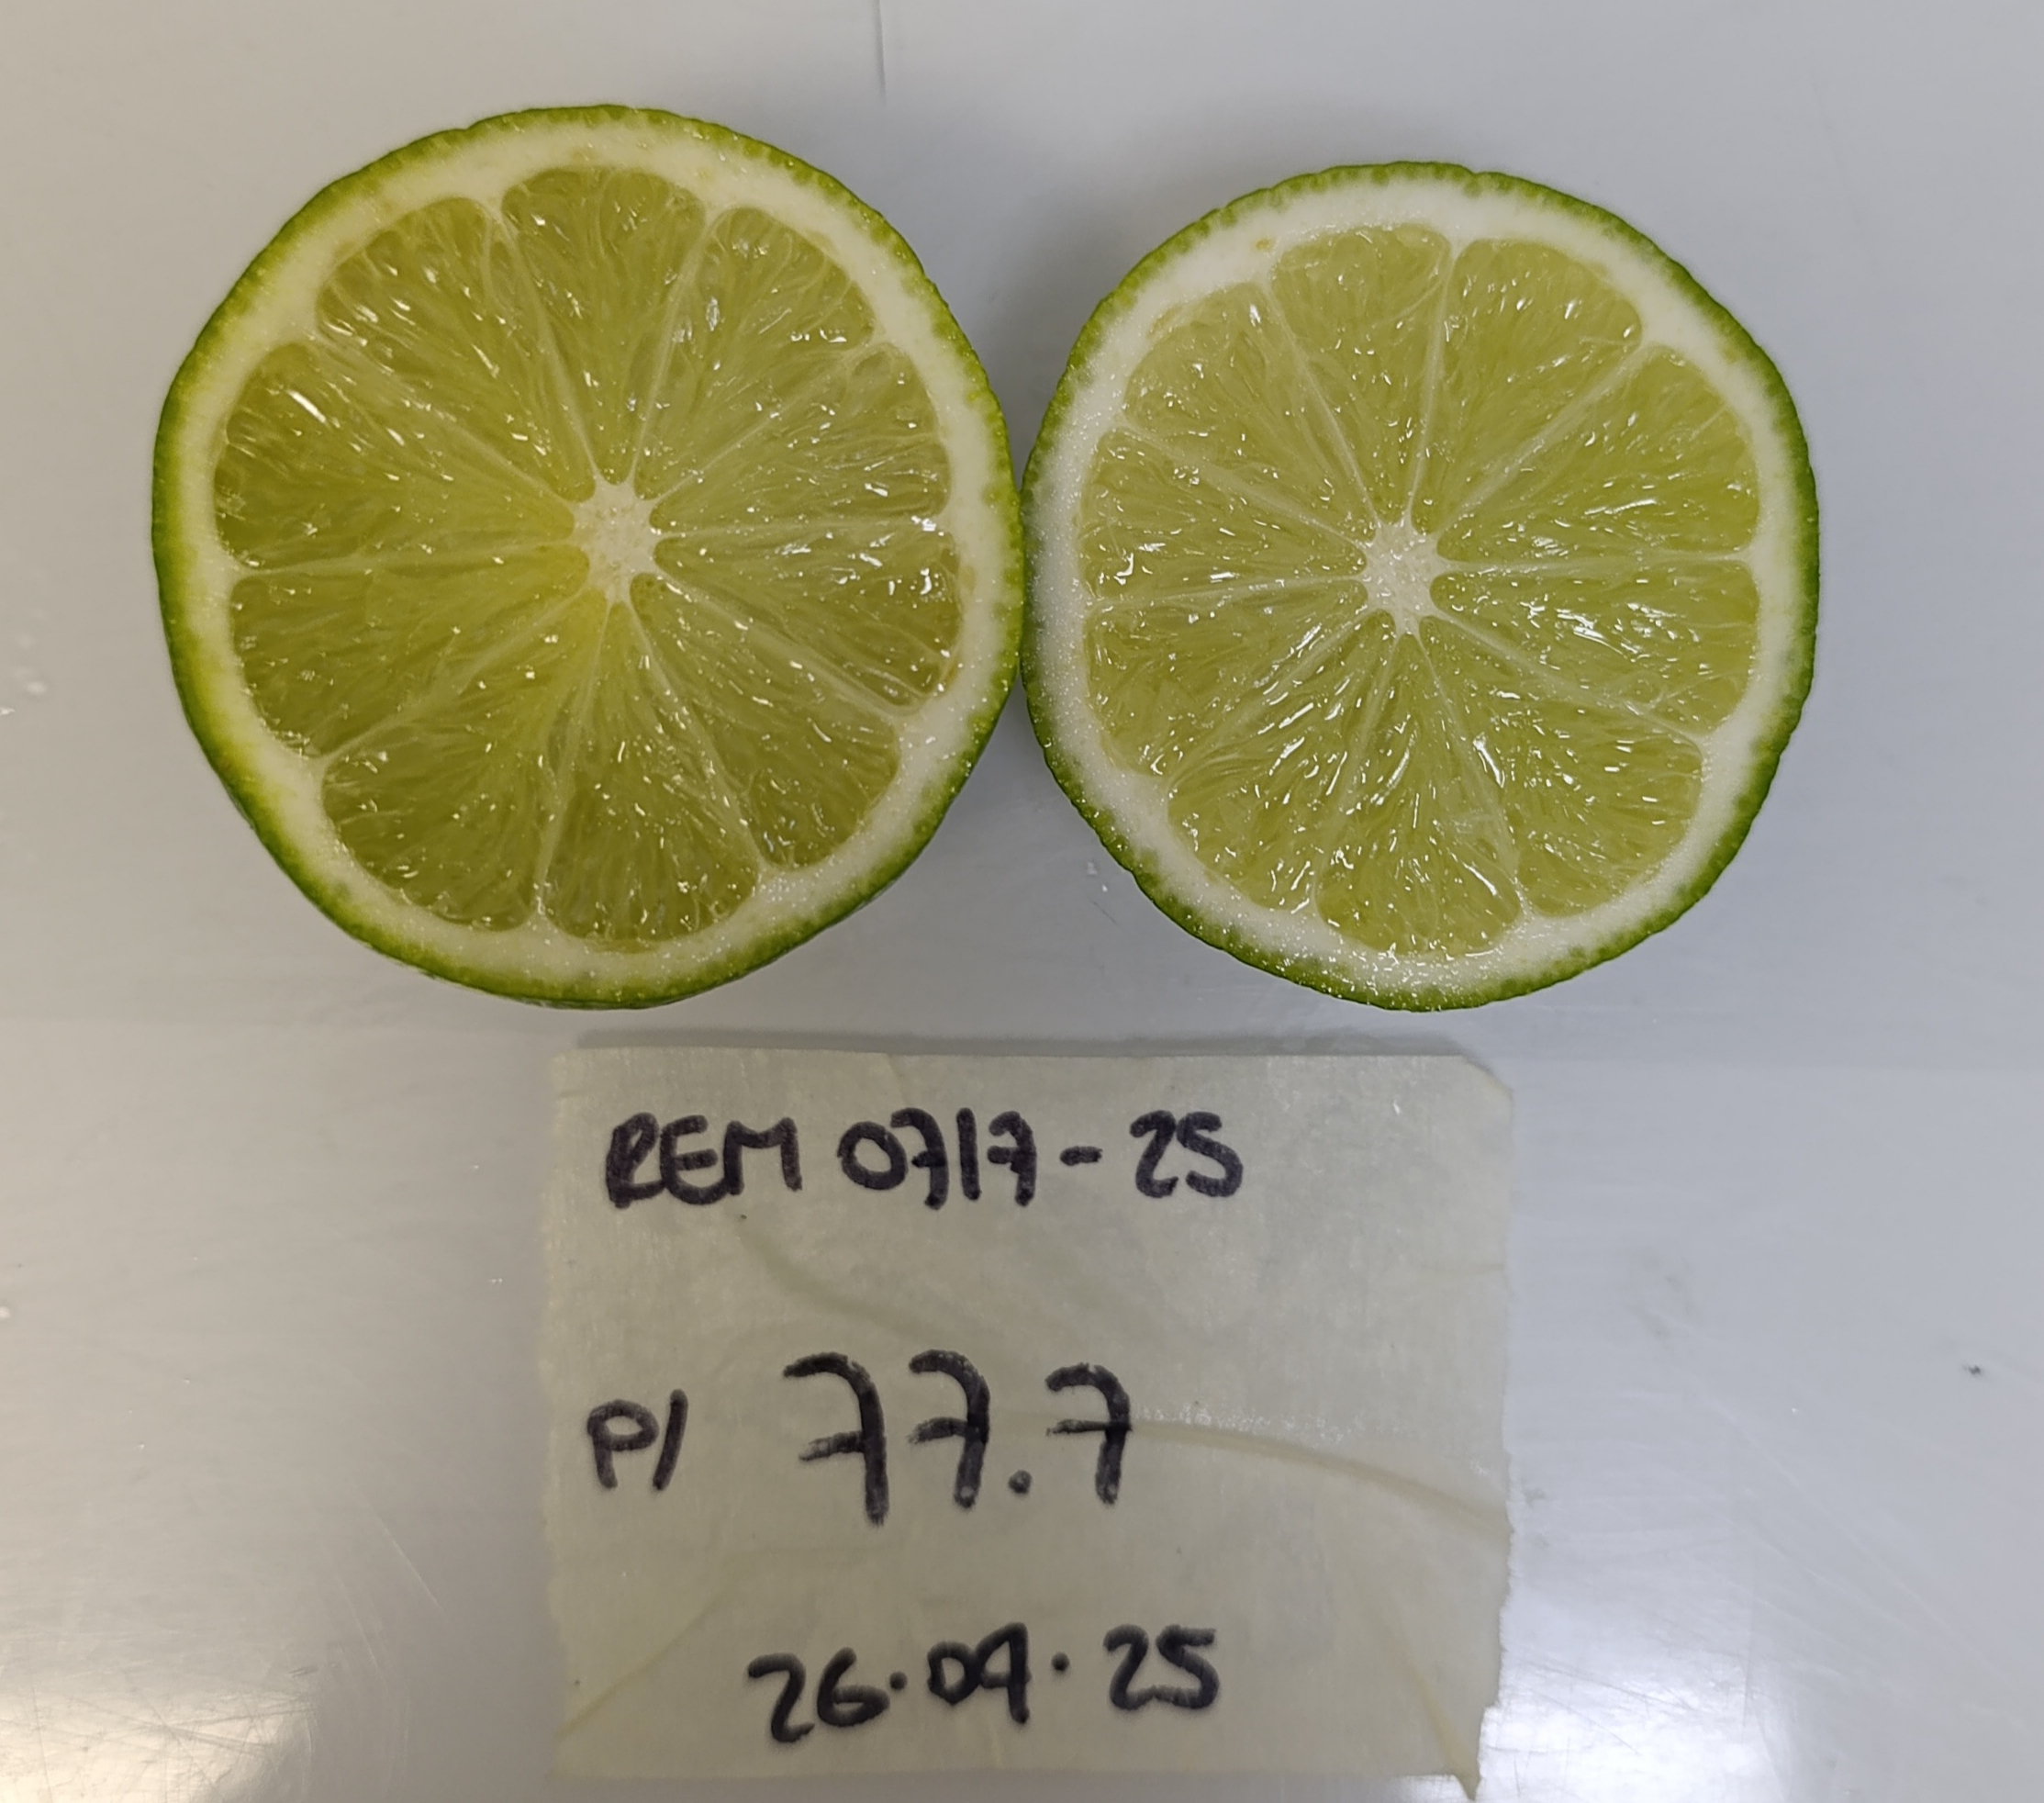 REM 0717-25
P/ 77.7
26.09.25